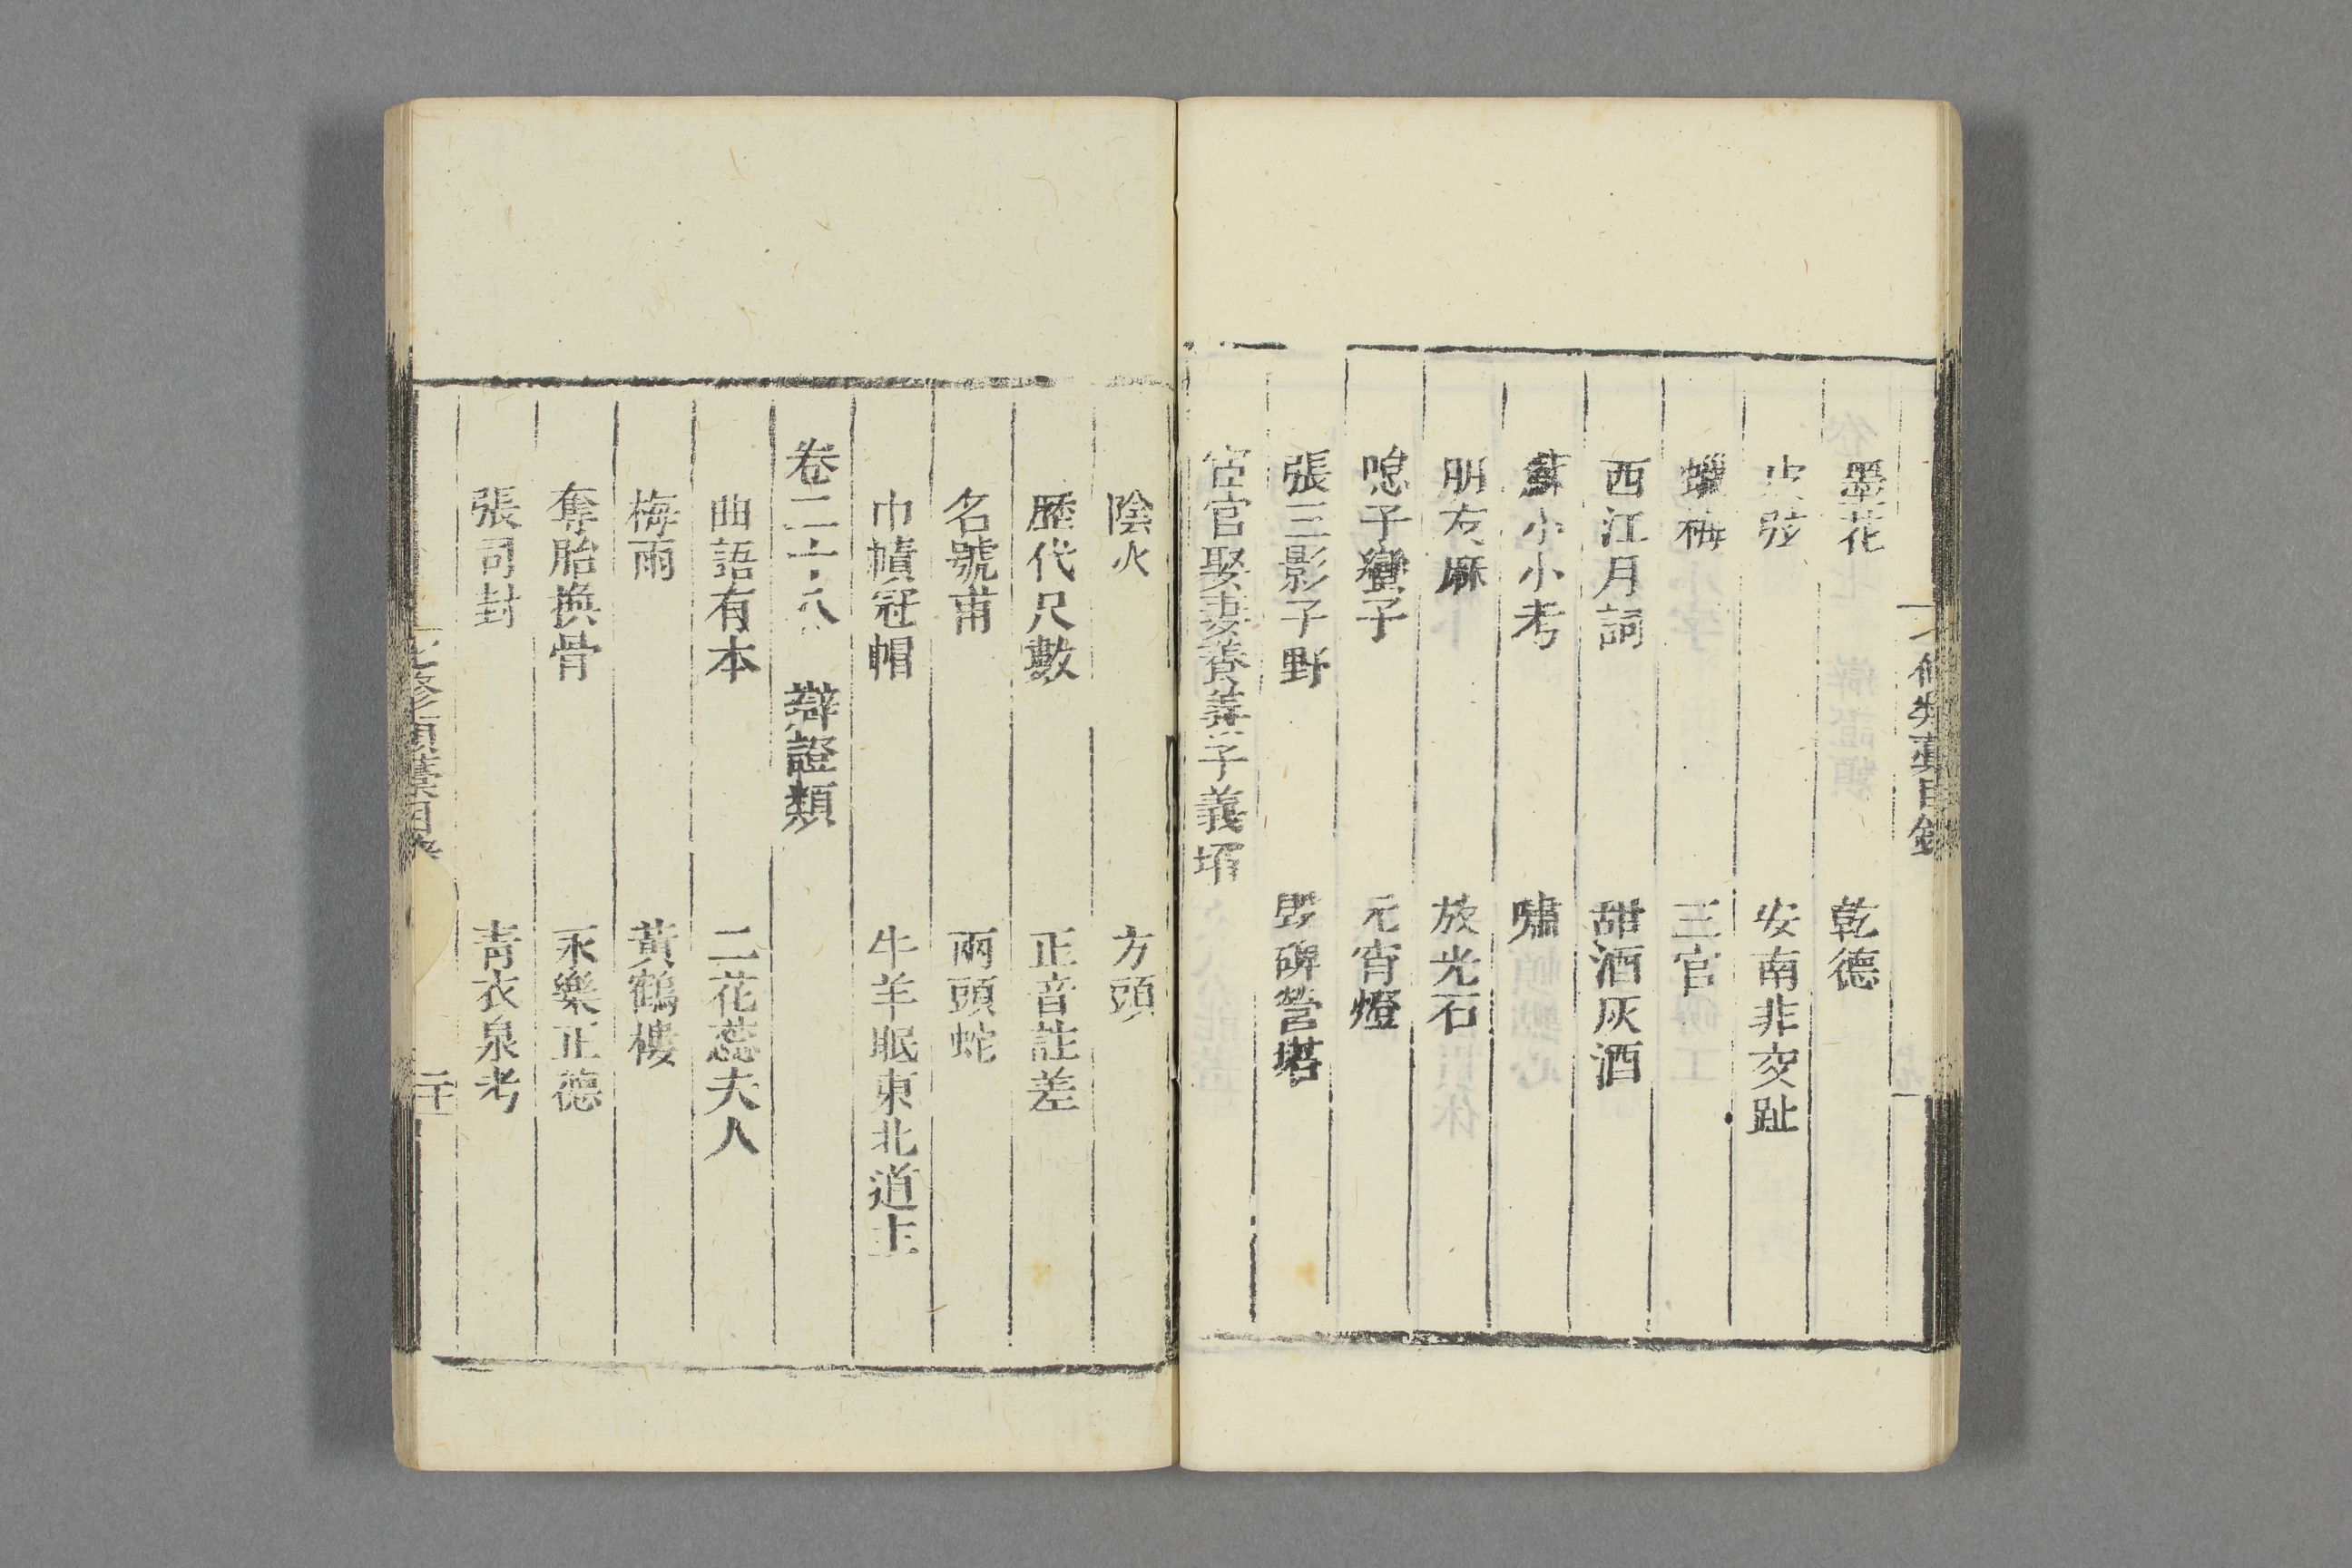 修類藁目錄
墨花　乾德
皮弦　安南非交趾
蠟梅　三官
西江月詞　甜酒灰酒
蘇小小考　嘯
朋友麻　放光石
子蠻子　元宵燈
張三影子野　毀碑營塔
宦官娶妻養義子義壻
陰火　方頭
歷代尺數　正音註差
名號甫　兩頭蛇
巾幘冠帽　牛羊眠東北道主
卷二十八　辯證類
曲語有本　二花蕊夫人
梅雨　黃鶴樓
奪胎換骨　永樂正德
張司封　靑衣泉考
七修類藁目錄　二十